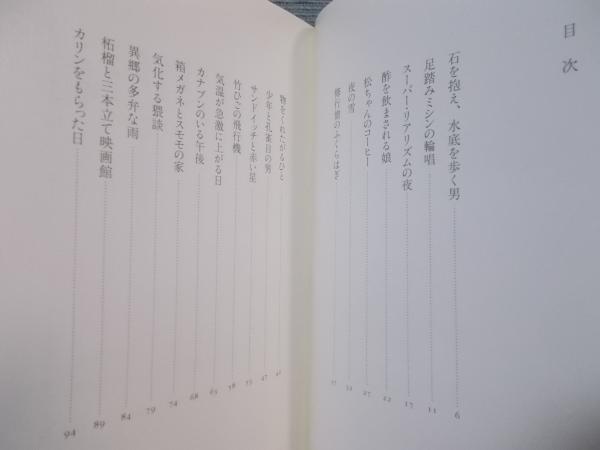 目次
石を抱え、水底を歩く男 6
足踏みミシンの輪唱 11
スーパー・リアリズムの夜 17
酢を飲まされる娘 22
松ちゃんのコーヒー 27
夜の雪 32
修行僧のふくらはぎ 37
物をくれたがるひと 42
少年と孔雀目の男 47
サンドイッチと赤い星 53
竹ひごの飛行機 58
気温が急激に上がる日 63
カナブンのいる午後 68
箱メガネとスモモの家 74
気化する猥談 79
異郷の多弁な雨 84
柘榴と三本立て映画館 89
カリンをもらった日 94